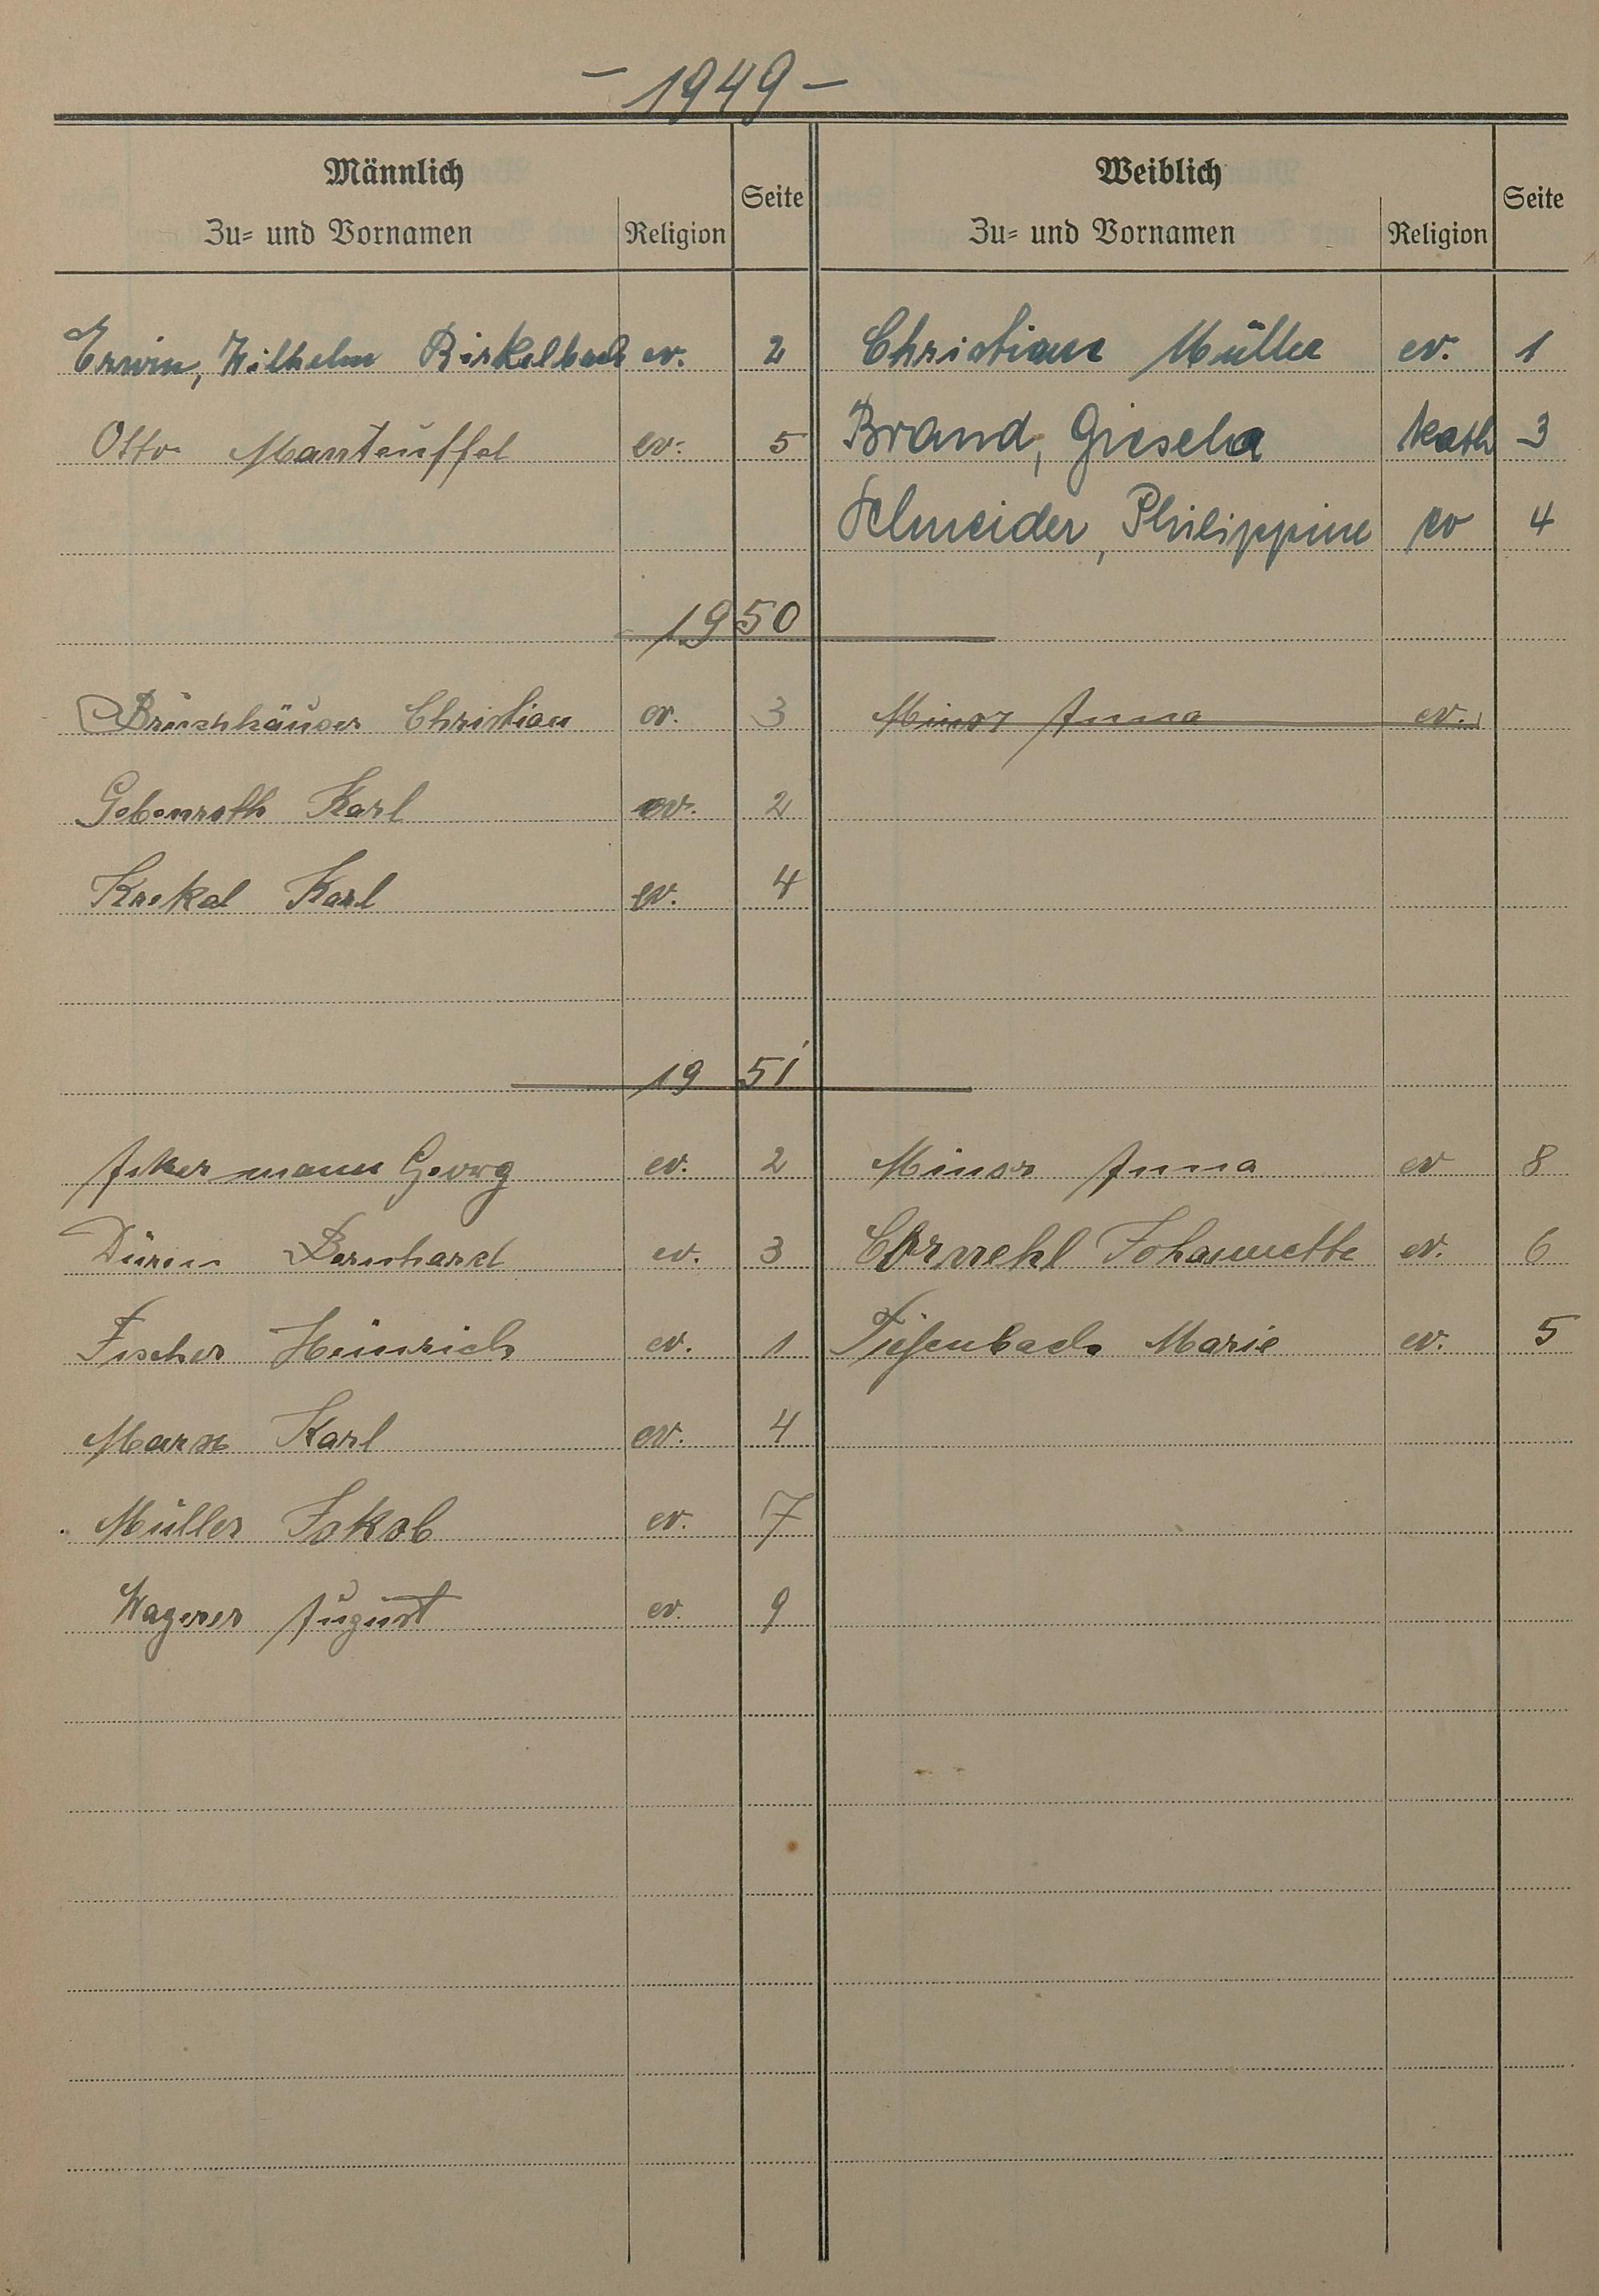 - 1949 -
Männlich Weiblich
Seite Seite
Zu- und Vornamen Religion Zu- und Vornamen Religion
Erwin, Wilhelm Birkelbach ev. 2 Christiane Müller ev. 1
Otto Manteuffel ev. 5 Brand, Giesela kath 3
Schneider, Philippine ev 4
1950
Christian ev. 3 Minor Anna ev.
Gebenroth Karl ev. 2
Krekel Karl ev. 4
1951
Ackermann Georg ev. 2 Minor Anna ev 8
Bernhard ev. 3 Cornehl Johannette ev. 6
Fischer Heinrich ev. 1 Tiefenbach Marie ev. 5
Marx Karl ev. 4
Müller Jakob ev. 7
Wagner August ev. 9